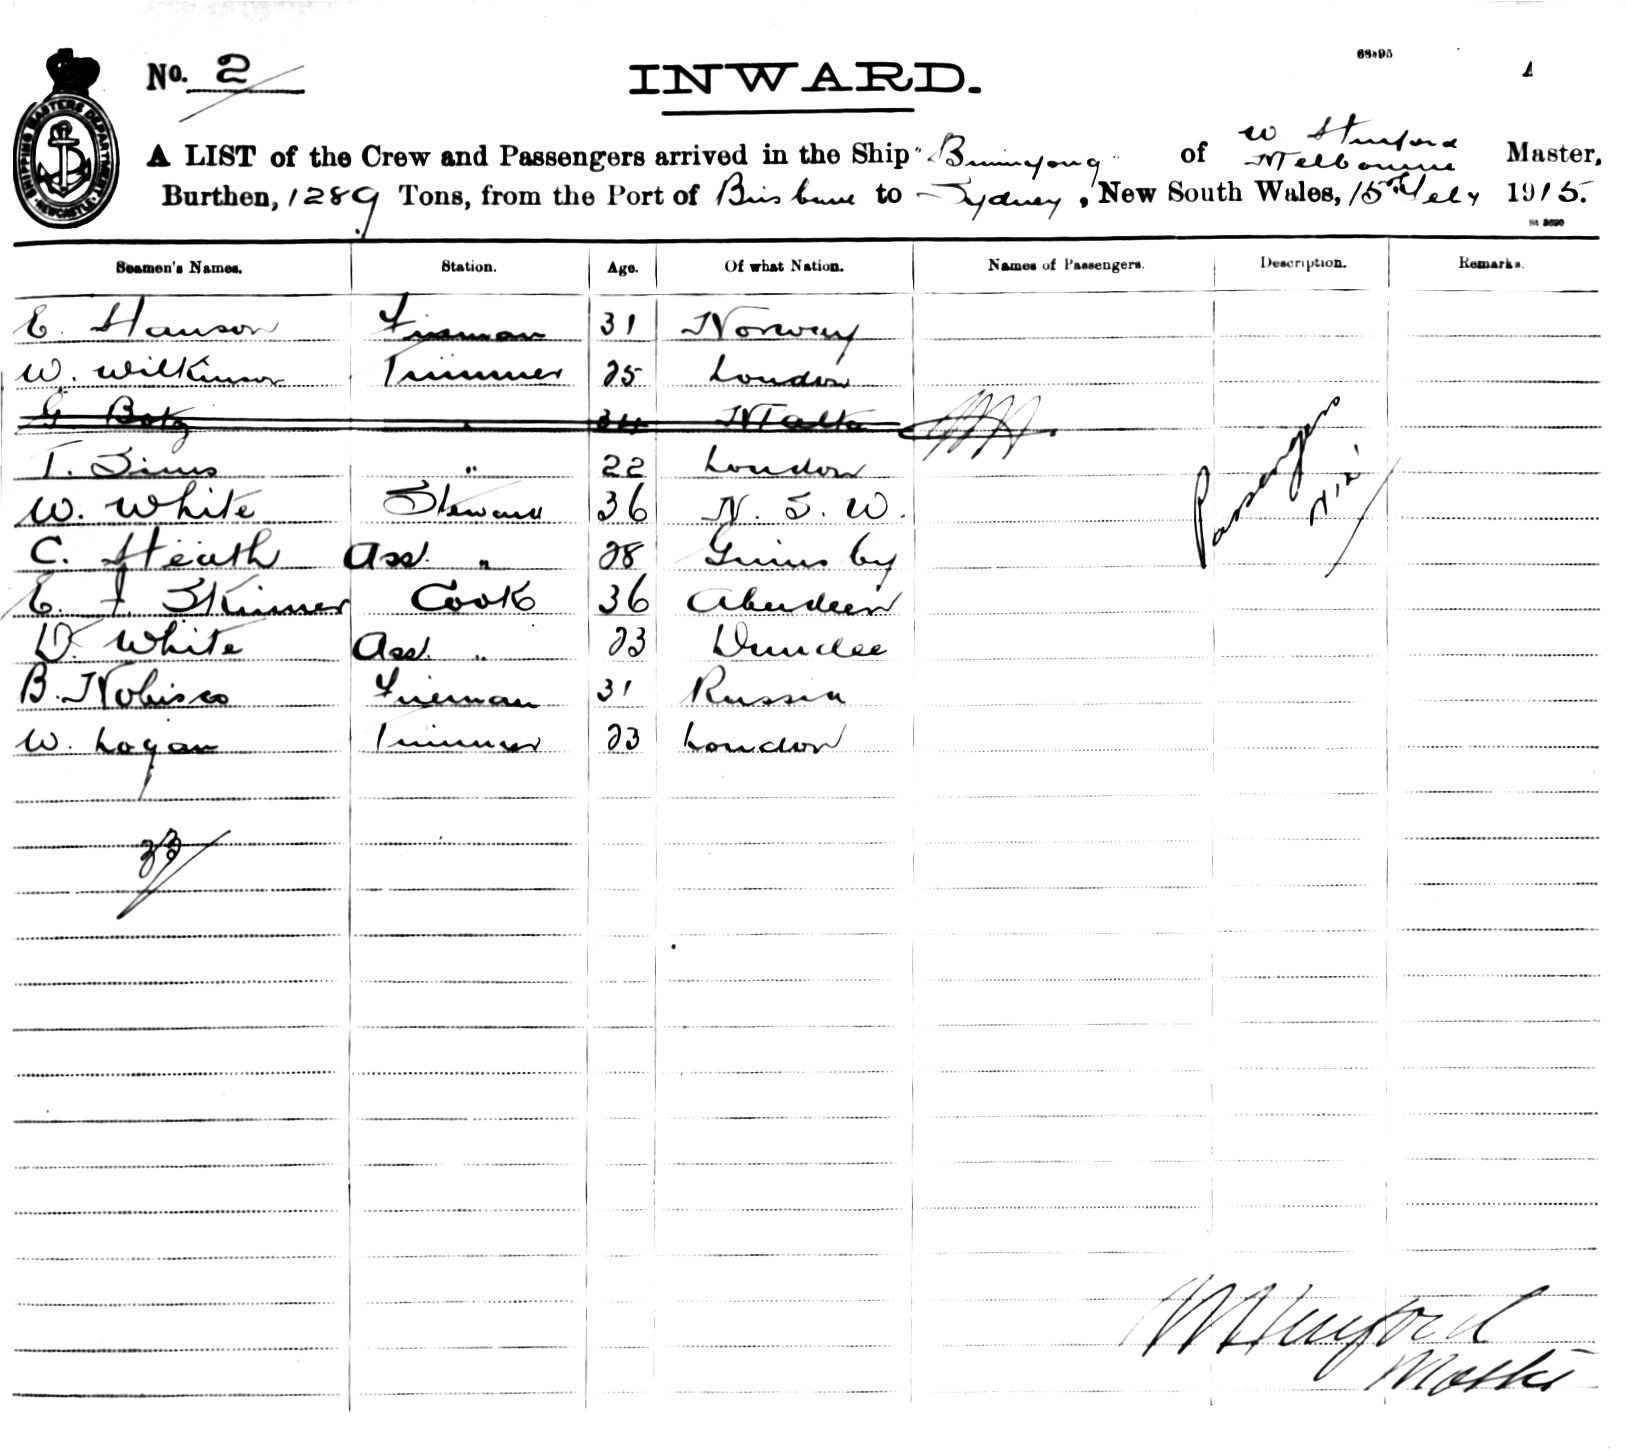 SHIPPING MASTERS DEPARTMENT
NEWCASTLE
No. 2
INWARD.
68595
A
A LIST of the Crew and Passengers arrived in the Ship "Buninyong" of W Hurford Melbourne Master,
Burthen, 1289 Tons, from the Port of Brisbane to Sydney, New South Wales, 15th July 1915.
St 3690
Seamen's Names. Station. Age. Of what Nation. Names of Passengers. Description. Remarks.
E. Hanson Fireman 31 Norway
W. Wilkinson Trimmer 25 London
G Botz " 34 Malta
T. Sims " 22 London
W. White Steward 36 N. S. W.
C. Heath Ass. " 28 Grimsby
E. F. Skinner Cook 36 Aberdeen
D. White Ass. " 23 Dundee
B. Nobisco Fireman 31 Russia
W. Logan Trimmer 23 London
Passengers
Nil
33
W Hurford
Master